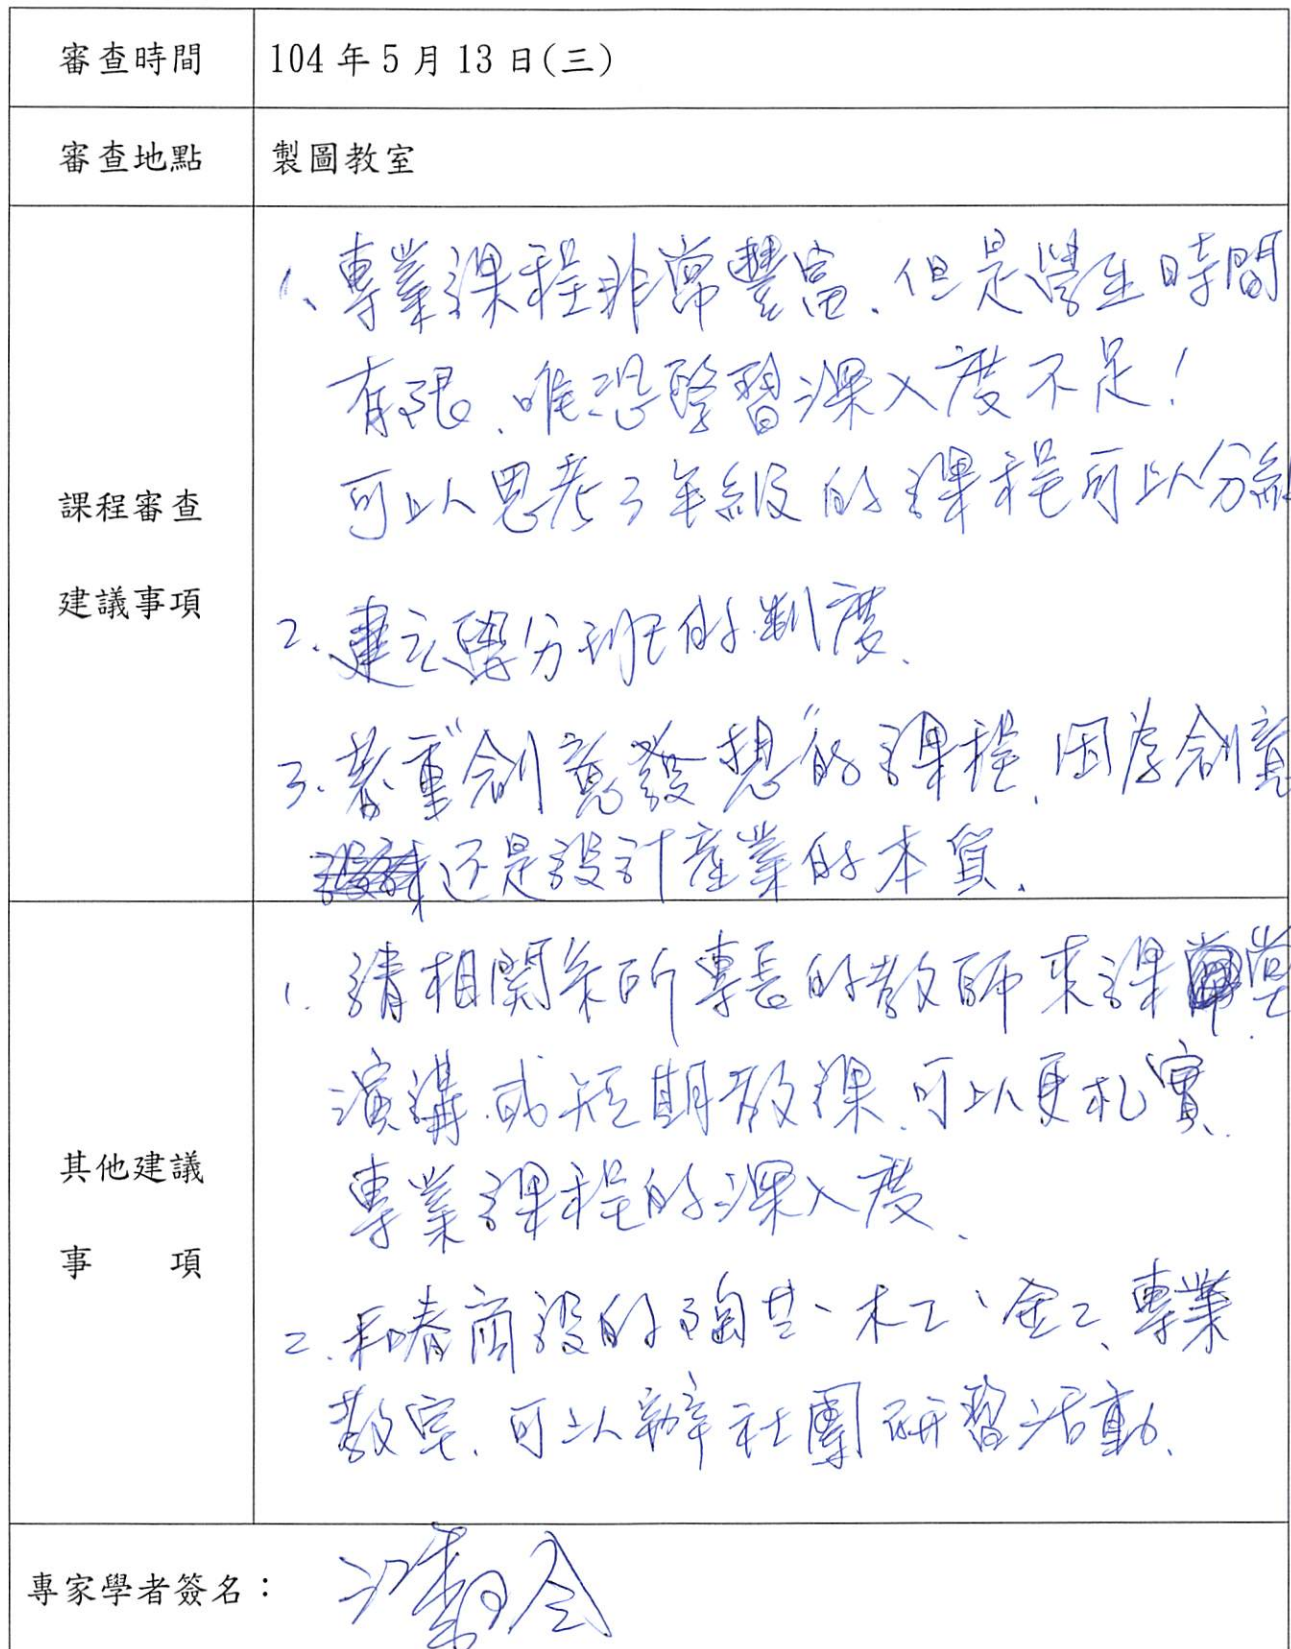 審查時間 104 年 5 月 13 日(三)
審查地點 製圖教室
課程審查
建議事項
1、專業課程非常豐富、但是學生時間
有限、唯恐學習深入度不足！
可以思考3年級的課程可以分組
2.建立學分班的制度、
3.著重"創意發想"的課程、因為創意
还是設計產業的本質、
其他建議
事 項
1.請相関系所專長的教師來課堂
演講或短期教課、可以更札實
專業課程的深入度、
2.和春商設的陶芸、木工、金工、專業
教室、可以辦社團研習活動、
專家學者簽名：